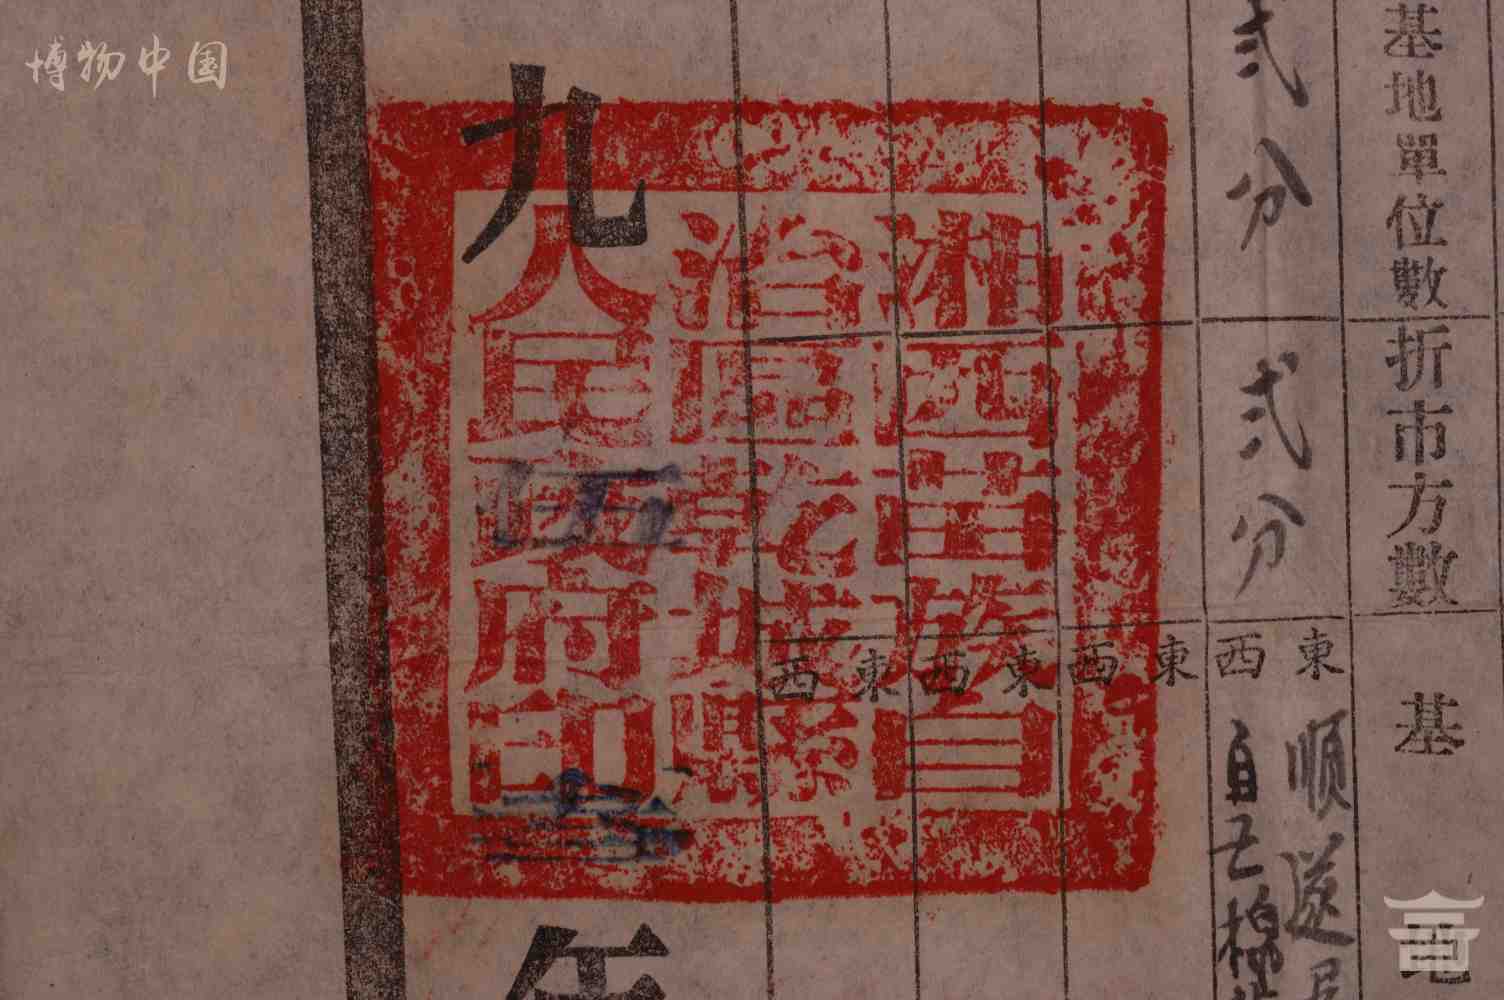 博物中国
基地單位數
折市方數
基地
弍分
弍分
東
西
東
西
東
西
東
西
順
自己
湘西苗族自
治區乾城縣
人民政府印
九伍叁年